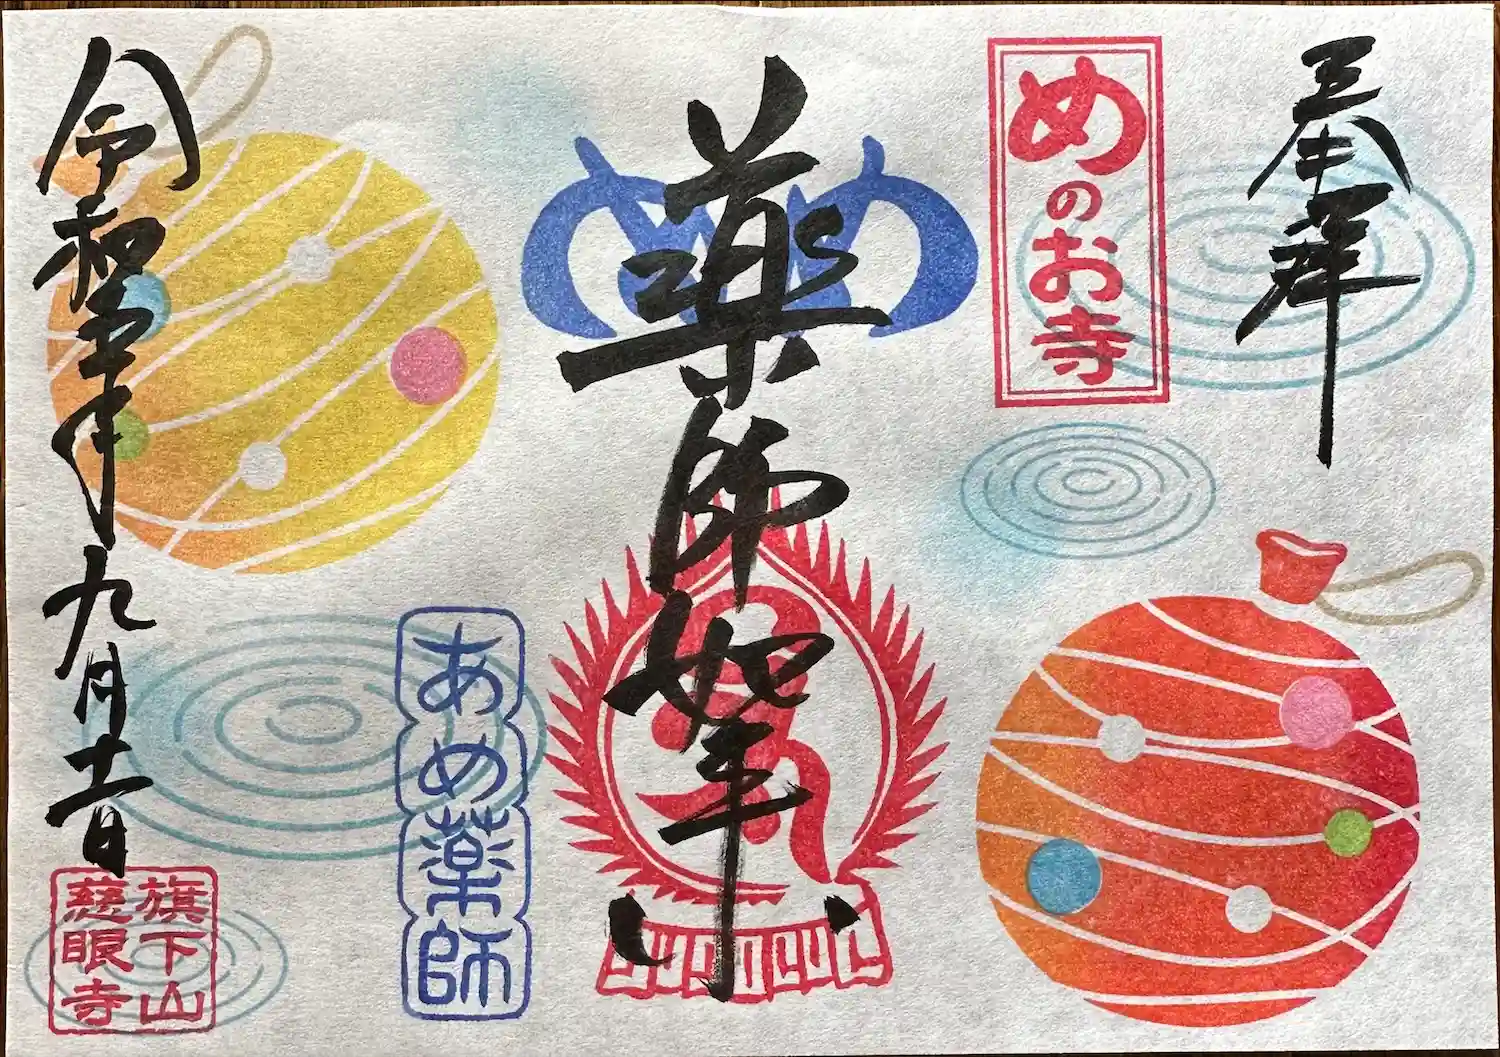 奉拝
めのお寺
薬師如来
あめ薬師
令和 年九月 日
旗下山
慈眼寺